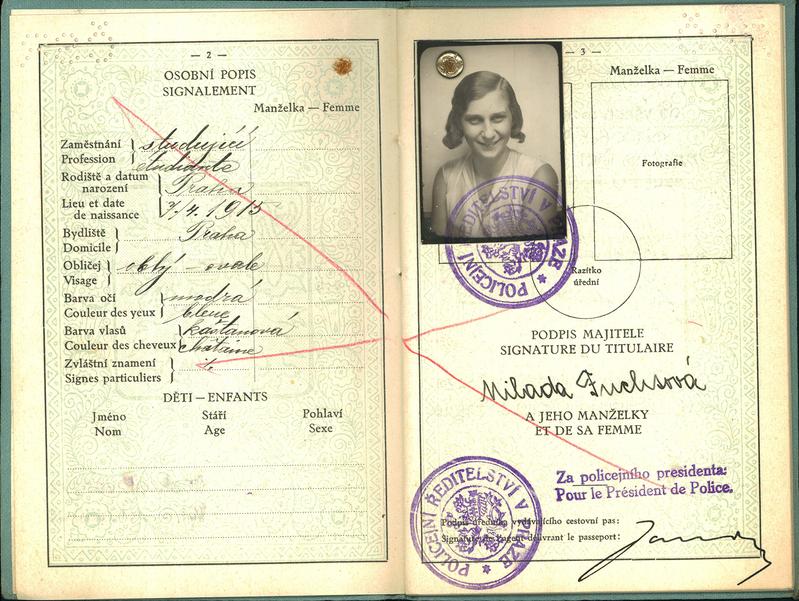 — 2 —
OSOBNÍ POPIS
SIGNALEMENT
Manželka — Femme
Zaměstnání } studující
Profession } étudiante
Rodiště a datum narození } Praha
Lieu et date de naissance } 7./4. 1915
Bydliště } Praha
Domicile
Obličej } oblý – ovale
Visage
Barva očí } modrá
Couleur des yeux } bleue
Barva vlasů } kaštanová
Couleur des cheveux } châtaine
Zvláštní znamení }
Signes particuliers
DĚTI — ENFANTS
Jméno Stáří Pohlaví
Nom Age Sexe
— 3 —
Manželka — Femme
Fotografie
POLICEJNÍ ŘEDITELSTVÍ V PRAZE
Razítko
úřední
PODPIS MAJITELE
SIGNATURE DU TITULAIRE
Milada Fuchsová
A JEHO MANŽELKY
ET DE SA FEMME
Za policejního presidenta:
Pour le Président de Police.
POLICEJNÍ ŘEDITELSTVÍ V PRAZE
Podpis úředníka vydávajícího cestovní pas:
Signature de l'agent délivrant le passeport: